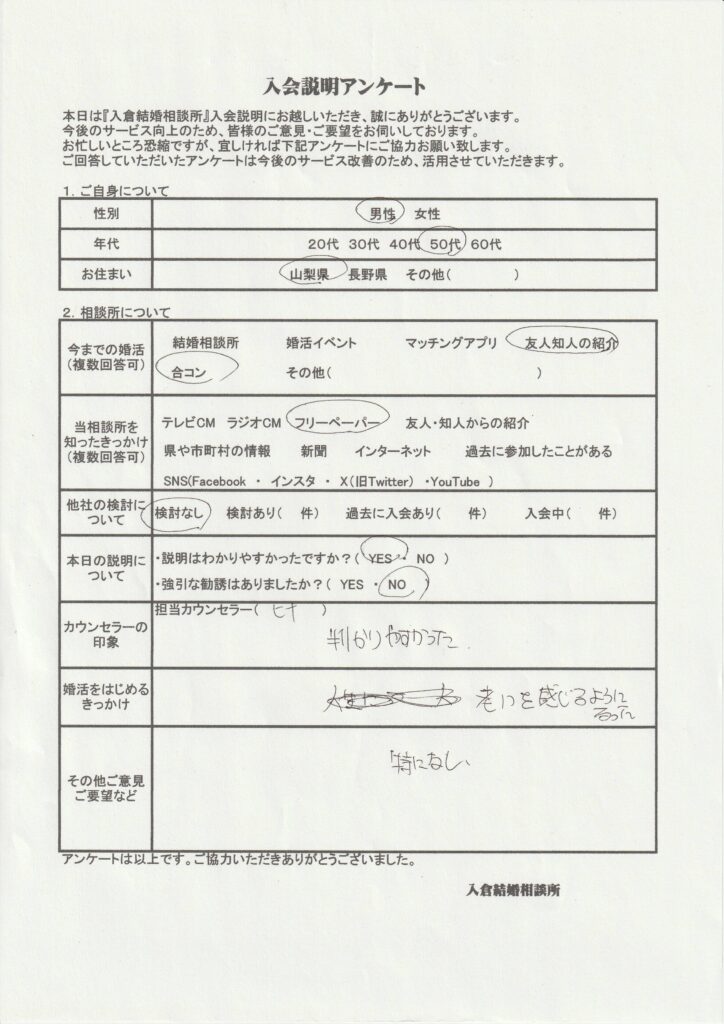 入会説明アンケート
本日は『入倉結婚相談所』入会説明にお越しいただき、誠にありがとうございます。
今後のサービス向上のため、皆様のご意見・ご要望をお伺いしております。
お忙しいところ恐縮ですが、宜しければ下記アンケートにご協力お願い致します。
ご回答していただいたアンケートは今後のサービス改善のため、活用させていただきます。
1. ご自身について
性別 男性 女性
年代 20代 30代 40代 50代 60代
お住まい 山梨県 長野県 その他( )
2. 相談所について
今までの婚活
(複数回答可)
結婚相談所 婚活イベント マッチングアプリ 友人知人の紹介
合コン その他( )
当相談所を
知ったきっかけ
(複数回答可)
テレビCM ラジオCM フリーペーパー 友人・知人からの紹介
県や市町村の情報 新聞 インターネット 過去に参加したことがある
SNS(Facebook ・ インスタ ・ X(旧Twitter) ・YouTube )
他社の検討に
ついて
検討なし 検討あり( 件) 過去に入会あり( 件) 入会中( 件)
本日の説明に
ついて
・説明はわかりやすかったですか?( YES ・ NO )
・強引な勧誘はありましたか?( YES ・ NO )
カウンセラーの
印象
担当カウンセラー( )
判かりやすかった
婚活をはじめる
きっかけ
老いを感じるように
なった
その他ご意見
ご要望など
特になし
アンケートは以上です。ご協力いただきありがとうございました。
入倉結婚相談所